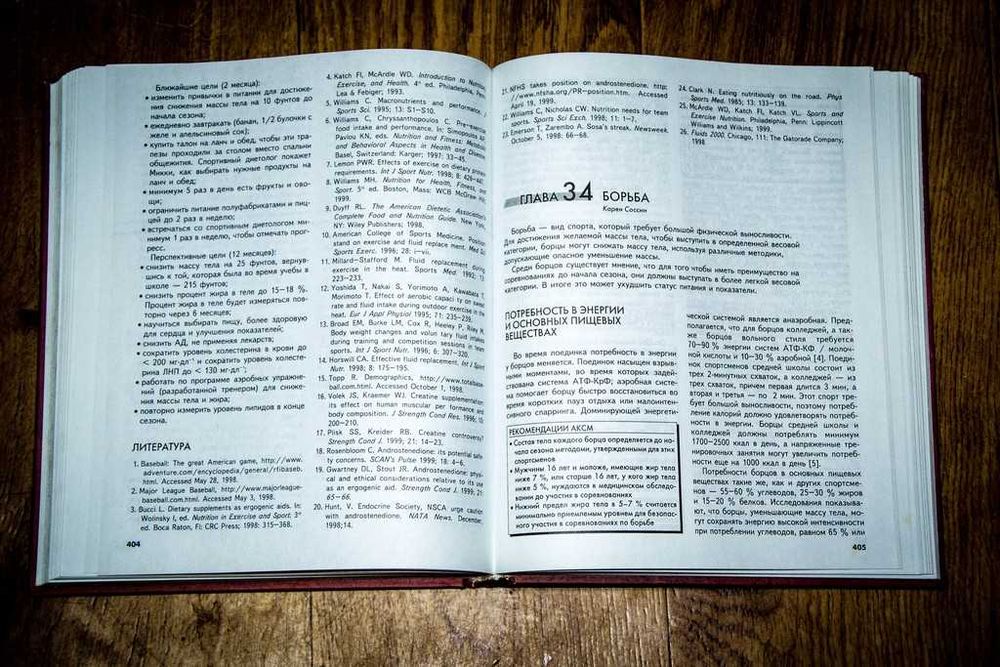 Ближайшие цели (2 месяца):
• изменить привычки в питании для достиже-
ния снижения массы тела на 10 фунтов до
начала сезона;
• ежедневно завтракать (банан, 1/2 булочки с
желе и апельсиновый сок);
• купить талон на ланч и обед, чтобы эти тра-
пезы проходили за столом вместо спальни
общежития. Спортивный диетолог покажет
Микки, как выбирать нужные продукты на
ланч и обед;
• минимум 5 раз в день есть фрукты и ово-
щи;
• ограничить питание полуфабрикатами и пиц-
цей до 2 раз в неделю;
• встречаться со спортивным диетологом ми-
нимум 1 раз в неделю, чтобы отмечать прог-
ресс.
Перспективные цели (12 месяцев):
• снизить массу тела на 25 фунтов, вернув-
шись к той, которая была во время учебы в
школе — 215 фунтов;
• снизить процент жира в теле до 15–18 %.
Процент жира в теле будет измеряться пов-
торно через 6 месяцев;
• научиться выбирать пищу, более здоровую
для сердца и улучшения показателей;
• снизить АД, не применяя лекарств;
• сократить уровень холестерина в крови до
< 200 мг·дл⁻¹ и сократить уровень холесте-
рина ЛНП до < 130 мг·дл⁻¹;
• работать по программе аэробных упражне-
ний (разработанной тренером) для сниже-
ния массы тела и жира;
• повторно измерить уровень липидов в конце
сезона.
ЛИТЕРАТУРА
1. Baseball: The great American game, http://www.
adventure.com/encyclopedia/general/rfibaseb.
html. Accessed May 28, 1998.
2. Major League Baseball, http://www.majorleague-
baseball.com. Accessed May 3, 1998.
3. Bucci L. Dietary supplements as ergogenic aids. In:
Wolinsky I, ed. Nutrition in Exercise and Sport. 3ᵈ
ed. Boca Raton, Fl: CRC Press; 1998: 315–368.
404
4. Katch FI, McArdle WD. Introduction to
Exercise, and Health. 4ᵗʰ ed. Philadelphia,
Lea & Febiger; 1993.
5. Williams C. Macronutrients and performance.
Sports Sci. 1995; 13: S1–S10.
6. Williams C, Chryssanthopoulos C. Pre-exercise
food intake and performance. In: Simopoulos
Pavlou KN, eds. Nutrition and Fitness:
and Behavioral Aspects in Health and Disease.
Basel, Switzerland: Karger; 1997: 33–45.
7. Lemon PWR. Effects of exercise on dietary protein
requirements. Int J Sport Nutr. 1998; 8: 426–447.
8. Williams MH. Nutrition for Health, Fitness, and
Sport. 5ᵗʰ ed. Boston, Mass: WCB McGraw
1999.
9. Duyff RL. The American Dietetic Association's
Complete Food and Nutrition Guide. New York,
NY: Wiley Publishers; 1998.
10. American College of Sports Medicine. Position
stand on exercise and fluid replacement. Med Sci
Sports Exerc. 1996; 28: i–vii.
11. Millard-Stafford M. Fluid replacement during
exercise in the heat. Sports Med. 1992; 13:
223–233.
12. Yoshida T, Nakai S, Yorimoto A, Kawabata T,
Morimoto T. Effect of aerobic capacity on sweat
rate and fluid intake during outdoor exercise in the
heat. Eur J Appl Physiol 1995; 71: 235–239.
13. Broad EM, Burke LM, Cox R, Heeley P, Riley M.
Body weight changes and voluntary fluid intakes
during training and competition sessions in team
sports. Int J Sport Nutr. 1996; 6: 307–320.
14. Horswill CA. Effective fluid replacement. Int J Sport
Nutr. 1998; 8: 175–195.
15. Topp R. Demographics, http://www.totalbase-
ball.com.html. Accessed October 1, 1998.
16. Volek JS, Kraemer WJ. Creatine supplementation:
its effect on human muscular performance and
body composition. J Strength Cond Res. 1996; 10:
200–210.
17. Plisk SS, Kreider RB. Creatine controversy?
Strength Cond J. 1999; 21: 14–23.
18. Rosenbloom C. Androstenedione: its potential safe-
ty concerns. SCAN's Pulse 1999; 18: 4–6.
19. Gwartney DL, Stout JR. Androstenedione: physi-
cal and ethical considerations relative to its use
as an ergogenic aid. Strength Cond J. 1999; 21:
65–66.
20. Hunt, V. Endocrine Society, NSCA urge caution
with androstenedione. NATA News, December,
1998;14.
21. NFHS takes position on androstenedione, http:
//www.nfsha.org/PR—position.htm. Accessed
April 19, 1999.
22. Williams C, Nicholas CW. Nutrition needs for team
sports. Sports Sci Exch. 1998; 11: 1–7.
23. Emerson T, Zaremto A. Sosa's streak. Newsweek.
October 5, 1998: 66–68.
24. Clark N. Eating nutritiously on the road. Phys
Sports Med. 1985; 13: 133–139.
25. McArdle WD, Katch FI, Katch VL. Sports and
Exercise Nutrition. Philadelphia, Penn: Lippincott
Williams and Wilkins; 1999.
26. Fluids 2000. Chicago, 111: The Gatorade Company;
1998
ГЛАВА 34 БОРЬБА
Карен Соссин
Борьба — вид спорта, который требует большой физической выносливости.
Для достижения желаемой массы тела, чтобы выступить в определенной весовой
категории, борцы могут снижать массу тела, используя различные методики,
допускающие опасное уменьшение массы.
Среди борцов существует мнение, что для того чтобы иметь преимущество на
соревнованиях до начала сезона, они должны выступать в более легкой весовой
категории. В итоге это может ухудшить статус питания и показатели.
ПОТРЕБНОСТЬ В ЭНЕРГИИ
И ОСНОВНЫХ ПИЩЕВЫХ
ВЕЩЕСТВАХ
Во время поединка потребность в энергии
у борцов меняется. Поединок насыщен взрыв-
ными моментами, во время которых задей-
ствована система АТФ-КрФ; аэробная систе-
ма помогает борцу быстро восстановиться во
время коротких пауз отдыха или малоинтен-
сивного спарринга. Доминирующей энергети-
РЕКОМЕНДАЦИИ АКСМ
• Состав тела каждого борца определяется до на-
чала сезона методами, утвержденными для этих
спортсменов
• Мужчины 16 лет и моложе, имеющие жир тела
ниже 7 %, или старше 16 лет, у кого жир тела
ниже 5 %, нуждаются в медицинском обследо-
вании до участия в соревнованиях
• Нижний предел жира тела в 5–7 % считается
минимально приемлемым уровнем для безопас-
ного участия в соревнованиях по борьбе
ческой системой является анаэробная. Пред-
полагается, что для борцов колледжей, а так-
же борцов вольного стиля требуется
70–90 % энергии систем АТФ-КФ / молоч-
ной кислоты и 10–30 % аэробной [4]. Поеди-
нок спортсменов средней школы состоит из
трех 2-минутных схваток, а колледжей — из
трех схваток, причем первая длится 3 мин, а
вторая и третья — по 2 мин. Этот спорт тре-
бует большой выносливости, поэтому потреб-
ление калорий должно удовлетворять потреб-
ности в энергии. Борцы средней школы и
колледжей должны потреблять минимум
1700–2500 ккал в день, а напряженные тре-
нировочные занятия могут увеличить потреб-
ности еще на 1000 ккал в день [5].
Потребности борцов в основных пищевых
веществах такие же, как и других спортсме-
нов — 55–60 % углеводов, 25–30 % жиров
и 15–20 % белков. Исследования показыва-
ют, что борцы, уменьшающие массу тела, мо-
гут сохранять энергию высокой интенсивности
при потреблении углеводов, равном 65 % или
405